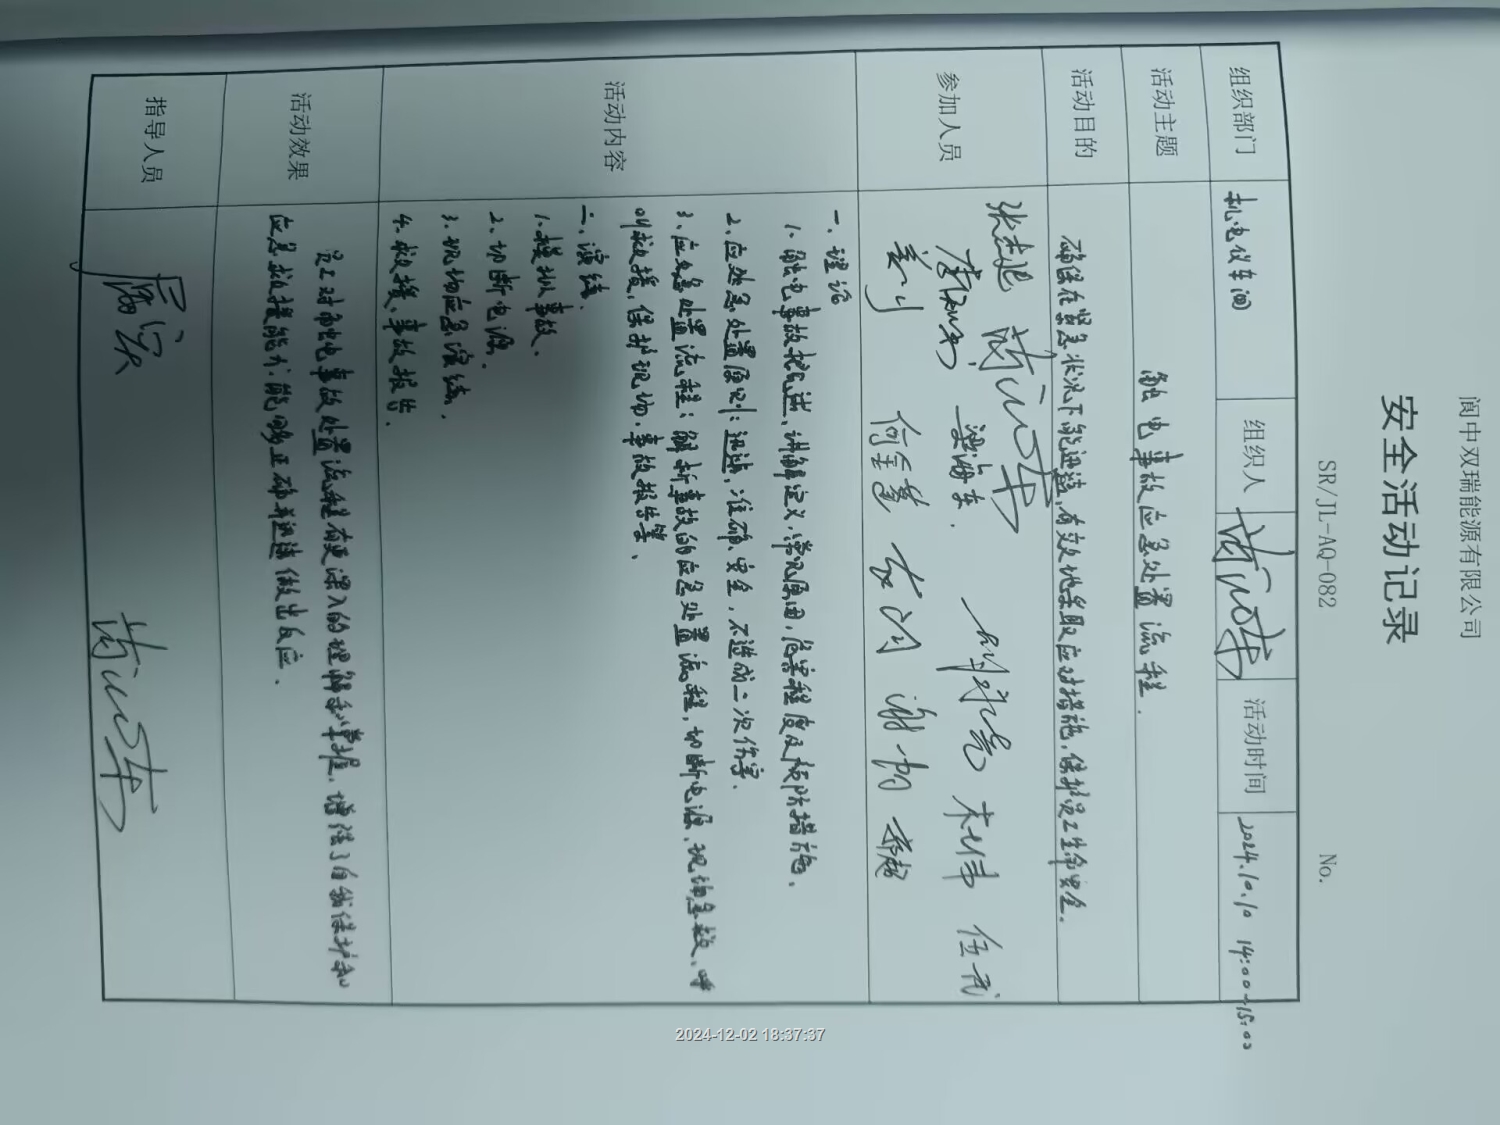 阆中双瑞能源有限公司
安全活动记录
SR/JL-AQ-082 No.
组织部门 机电仪车间 组织人 活动时间 2024.10.10 14:00-15:00
活动主题 触电事故应急处置流程.
活动目的 确保在紧急状况下能迅速,有效地采取应对措施,保护员工生命安全.
参加人员
梁海东.
伍武
姜川
活动内容
一、理论
1、触电事故概述,讲解定义,常见原因,危害程度及预防措施.
2、应处急处置原则:迅速,准确、安全,不造成二次伤害.
3、应急处置流程:解析事故的应急处置流程,切断电源、现场急救、呼
叫救援、保护现场、事故报告等、
二、演练.
1.模拟事故、
2、切断电源、
3、现场应急演练.
4、救援、事故报告.
活动效果 员工对触电事故处置流程有更深入的理解和掌握,增强了自我保护和
应急救援能力.能够正确并迅速做出反应.
指导人员
2024-12-02 18:37:37